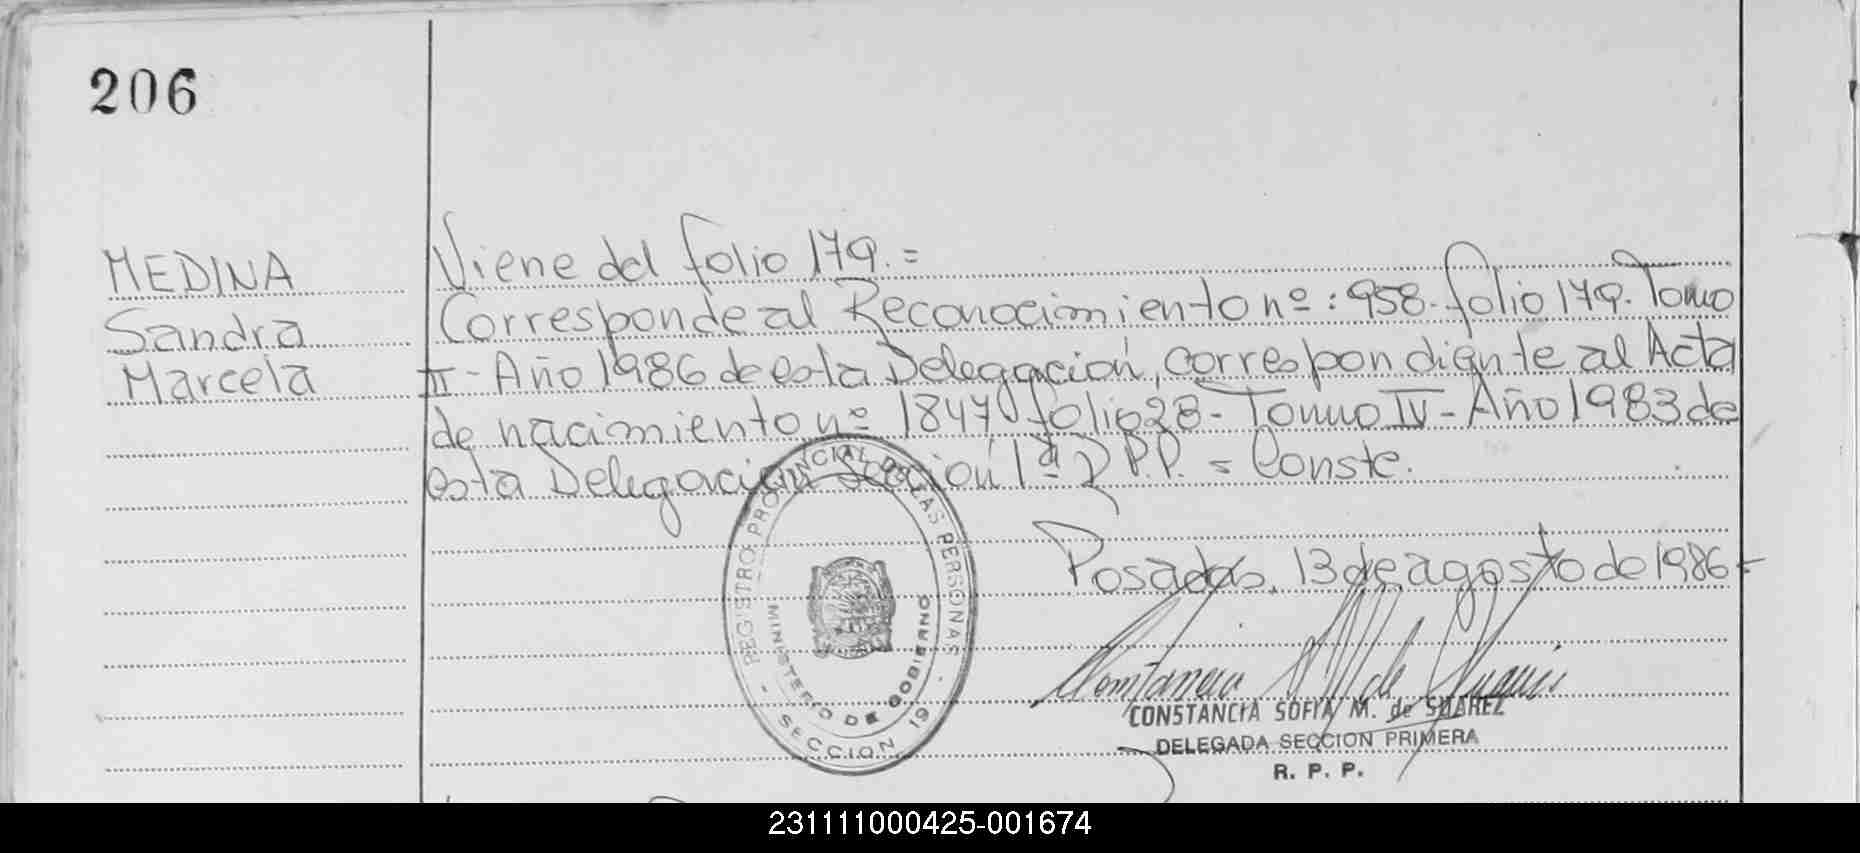 206
MEDINA
Sandra
Marcela
Viene del folio 179.=
Corresponde al Reconocimiento nº: 958- folio 179. Tomo
II - Año 1986 de esta Delegación, correspondiente al Acta
de nacimiento nº 1847 folio 28 - Tomo IV - Año 1983 de
esta Delegación Sección 1ª R P.P. = Conste.
Posadas, 13 de agosto de 1986 -
REGISTRO PROVINCIAL DE LAS PERSONAS
MINISTERIO DE GOBIERNO
SECCION 1ª
CONSTANCIA SOFIA M. de SUAREZ
DELEGADA SECCION PRIMERA
R. P. P.
231111000425-001674